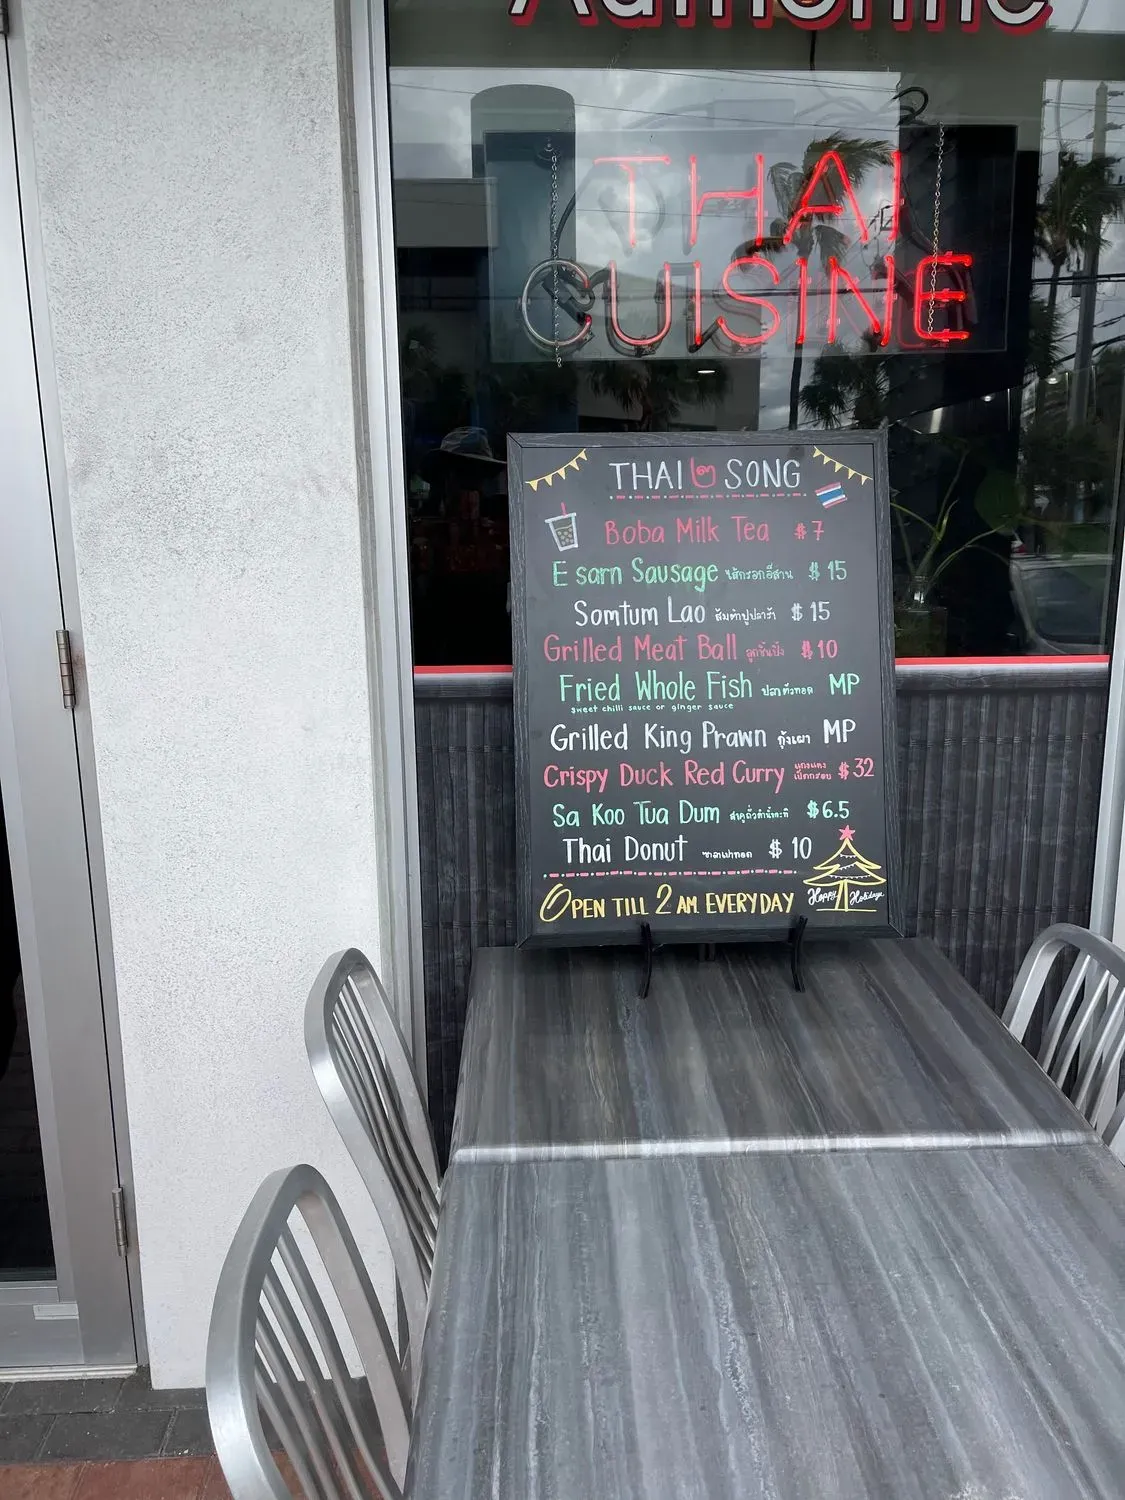 Authentic
THAI
CUISINE
THAI ๒ SONG
Boba Milk Tea $7
E sarn Sausage ไส้กรอกอีสาน $15
Somtum Lao ส้มตำปูปลาร้า $15
Grilled Meat Ball ลูกชิ้นปิ้ง $10
Fried Whole Fish ปลาตัวทอด MP
sweet chilli sauce or ginger sauce
Grilled King Prawn กุ้งเผา MP
Crispy Duck Red Curry แกงแดง เป็ดกรอบ $32
Sa Koo Tua Dum สาคูถั่วดำน้ำกะทิ $6.5
Thai Donut ซาลาเปาทอด $10
OPEN TILL 2 AM EVERYDAY
Happy Holidays